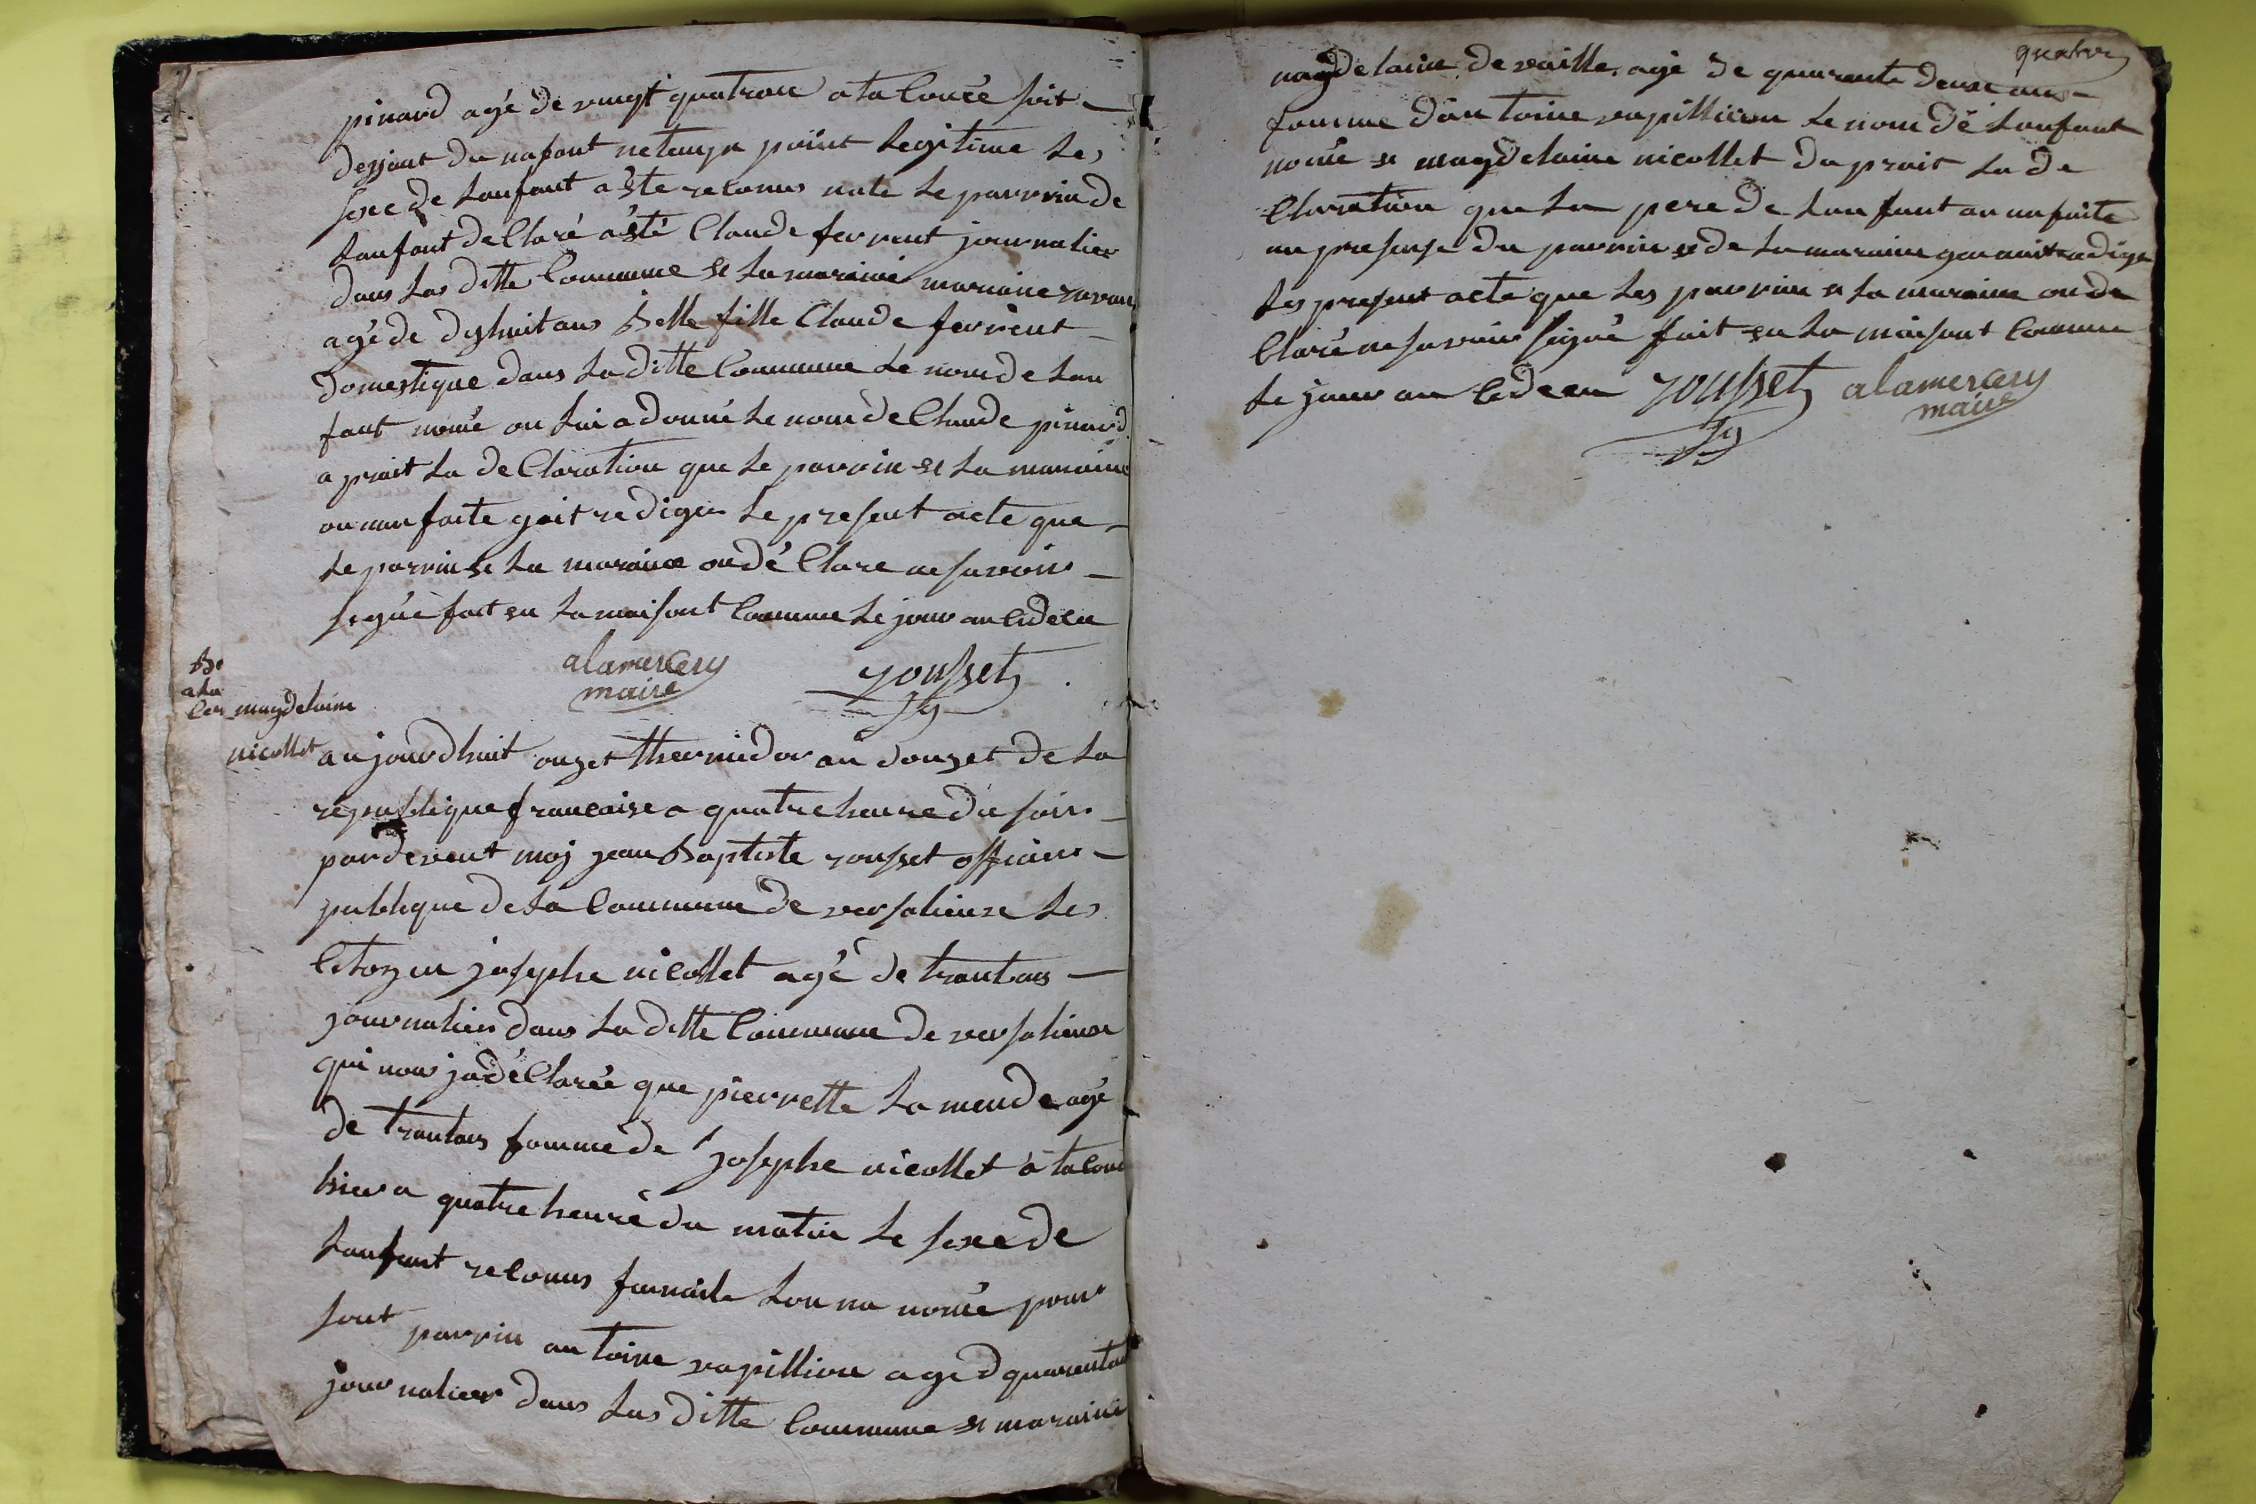 pinard agé de vingt quatran a ta Couée soit
dessant du nafant netemps point Legitime Les
sexe de Lanfant a été reconus male Le parrin de
Lanfant declaré a été Claude fervent journalier
dans Las ditte Commune et La maraine mariane
agé de dixhuit ans Belle fille Claude fervent
domestique dans La ditte Commune Le nom de Lan
fant nomé on Lui a donné Le nom de Claude pinard
a prait La declaration que Le parrin et La maraine
on nan faite jait rediger Le present acte que
Le parrin et La maraine on declare ne savoir
signé fait en La maisont Commune Le jour an cideen
alamercery rousset
maire
magdelaine
nicollet
aujourdhuit onzet thermidor an douzet de La
republique francaise a quatre heure du soir
pardevent moj jean Baptiste rousset officier
publique de La Commune de versalieux Les
Citoyen josephe nicollet agé de trantans
journalier dans La ditte Commune de versalieux
qui nous ja déclarée que pierrette La mende agé
de trantans famme de josephe nicollet a ta Coué
hier a quatre heure du matin Le sexe de
Lanfant reconus famaile Lon na nomée pour
sont parrin antoine rapillion agé d quarentan
journalier dans Las ditte Commune et maraine
quatre
magdelaine devaille agé de quarente deux ans
famme dantoine rapillion Le nom dé Lanfant
nomée et magdelaine nicollet da prait La de
Claration que La pere de Lanfant an nafaite
an presense du parrin et de La maraine
Les present acte que Les parrin et La maraine on de
Claré ne savoir signé fait en La maisont Commune
Le jour an cideen rousset alamercery
maire